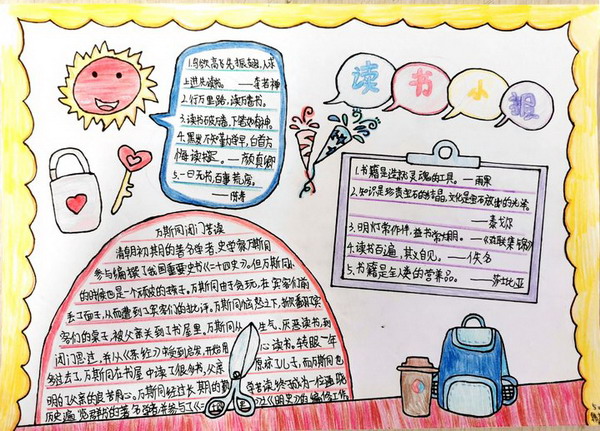 读书小报
1.鸟欲高飞先振翅,人求
上进先读书。——李若禅
2.行万里路,读万卷书。
3.读书破万卷,下笔如有神。
4.黑发不知勤学早,白首方
悔读书迟。——颜真卿
5.一日无书,百事荒废。
——陈寿
1.书籍是造就灵魂的工具。——雨果
2.知识是珍贵宝石的结晶,文化是宝石放出的光泽。
——泰戈尔
3.明灯常作伴,益书常为朋。——
4.读书百遍,其义自见。——佚名
5.书籍是全人类的营养品。——莎士比亚
万斯同闭门苦读
清朝初期的著名学者、史学家万斯同
参与编撰了我国重要史书《二十四史》。但万斯同小
的时候也是一个顽皮的孩子。万斯同由于贪玩,在宾客们面前
丢了面子,从而遭到了宾客们的批评。万斯同恼怒之下,掀翻了宾
客们的桌子,被父亲关到了书屋里。万斯同从生气、厌恶读书,到
闭门思过,并从《茶经》中受到启发,开始用心读书。转眼一年
多过去了,万斯同在书屋中读了很多书,父亲原谅了儿子,而万斯同也
明白了父亲的良苦用心。万斯同经过长期的勤学苦读,终于成为一位通晓
历史遍览群书的著名学者,并参与了《二 史》之《明史》的编修工作